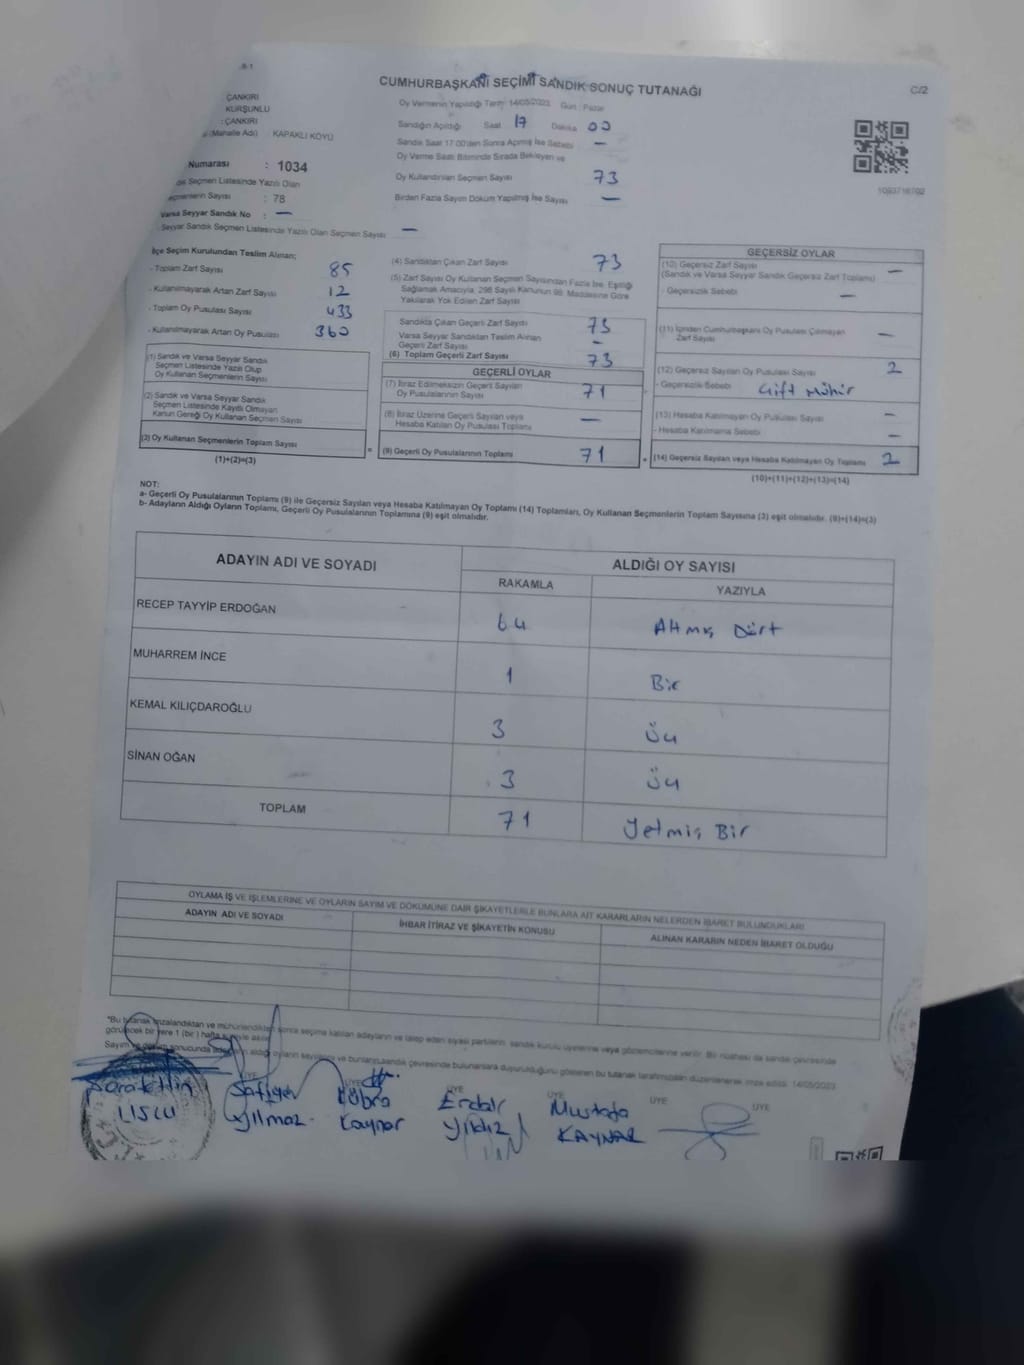 CUMHURBAŞKANI SEÇİMİ SANDIK SONUÇ TUTANAĞI
C/2
ÇANKIRI
KURŞUNLU
: ÇANKIRI
(Mahalle Adı) : KAPAKLI KÖYÜ
Numarası : 1034
Seçmen Listesinde Yazılı Olan
Seçmenlerin Sayısı : 78
Varsa Seyyar Sandık No : —
Seyyar Sandık Seçmen Listesinde Yazılı Olan Seçmen Sayısı —
Oy Vermenin Yapıldığı Tarih: 14/05/2023 Gün: Pazar
Sandığın Açıldığı Saat 17 Dakika 00
Sandık Saat 17.00'den Sonra Açılmış İse Sebebi —
Oy Verme Saati Bitiminde Sırada Bekleyen ve
Oy Kullandırılan Seçmen Sayısı 73
Birden Fazla Sayım Döküm Yapılmış İse Sayısı —
İlçe Seçim Kurulundan Teslim Alınan;
- Toplam Zarf Sayısı 85
- Kullanılmayarak Artan Zarf Sayısı 12
- Toplam Oy Pusulası Sayısı 433
- Kullanılmayarak Artan Oy Pusulası 360
(1) Sandık ve Varsa Seyyar Sandık
Seçmen Listesinde Yazılı Olup
Oy Kullanan Seçmenlerin Sayısı
(2) Sandık ve Varsa Seyyar Sandık
Seçmen Listesinde Kayıtlı Olmayan
Kanun Gereği Oy Kullanan Seçmen Sayısı
(3) Oy Kullanan Seçmenlerin Toplam Sayısı
(1)+(2)=(3)
(4) Sandıktan Çıkan Zarf Sayısı 73
(5) Zarf Sayısı Oy Kullanan Seçmen Sayısından Fazla İse, Eşitliği
Sağlamak Amacıyla, 298 Sayılı Kanunun 98. Maddesine Göre
Yakılarak Yok Edilen Zarf Sayısı
Sandıkta Çıkan Geçerli Zarf Sayısı 73
Varsa Seyyar Sandıktan Teslim Alınan
Geçerli Zarf Sayısı —
(6) Toplam Geçerli Zarf Sayısı 73
GEÇERLİ OYLAR
(7) İtiraz Edilmeksizin Geçerli Sayılan
Oy Pusulasının Sayısı 71
(8) İtiraz Üzerine Geçerli Sayılan veya
Hesaba Katılan Oy Pusulası Toplamı —
(9) Geçerli Oy Pusulalarının Toplamı 71
GEÇERSİZ OYLAR
(10) Geçersiz Zarf Sayısı —
(Sandık ve Varsa Seyyar Sandık Geçersiz Zarf Toplamı)
- Geçersizlik Sebebi —
(11) İçinden Cumhurbaşkanı Oy Pusulası Çıkmayan
Zarf Sayısı —
(12) Geçersiz Sayılan Oy Pusulası Sayısı 2
- Geçersizlik Sebebi Çift Mühür
(13) Hesaba Katılmayan Oy Pusulası Sayısı —
- Hesaba Katılmama Sebebi —
(14) Geçersiz Sayılan veya Hesaba Katılmayan Oy Toplamı 2
(10)+(11)+(12)+(13)=(14)
NOT:
a- Geçerli Oy Pusulalarının Toplamı (9) ile Geçersiz Sayılan veya Hesaba Katılmayan Oy Toplamı (14) Toplamları, Oy Kullanan Seçmenlerin Toplam Sayısına (3) eşit olmalıdır. (9)+(14)=(3)
b- Adayların Aldığı Oyların Toplamı, Geçerli Oy Pusulalarının Toplamına (9) eşit olmalıdır.
ADAYIN ADI VE SOYADI
ALDIĞI OY SAYISI
RAKAMLA YAZIYLA
RECEP TAYYİP ERDOĞAN 64 Altmış Dört
MUHARREM İNCE 1 Bir
KEMAL KILIÇDAROĞLU 3 Üç
SİNAN OĞAN 3 Üç
TOPLAM 71 Yetmiş Bir
OYLAMA İŞ VE İŞLEMLERİNE VE OYLARIN SAYIM VE DÖKÜMÜNE DAİR ŞİKAYETLERLE BUNLARA AİT KARARLARIN NELERDEN İBARET BULUNDUKLARI
ADAYIN ADI VE SOYADI
İHBAR İTİRAZ VE ŞİKAYETİN KONUSU
ALINAN KARARIN NEDEN İBARET OLDUĞU
*Bu tutanak imzalandıktan ve mühürlendikten sonra seçime katılan adayların ve talep eden siyasi partilerin, sandık kurulu üyelerine veya gözlemcilerine verilir. Bir nüshası da sandık çevresinde
görülecek bir yere 1 (bir) hafta süreyle asılır.
ÜYE ÜYE ÜYE ÜYE ÜYE
Safiye Kübra Erdal Mustafa
Yılmaz Kaynar Yıldız KAYNAR